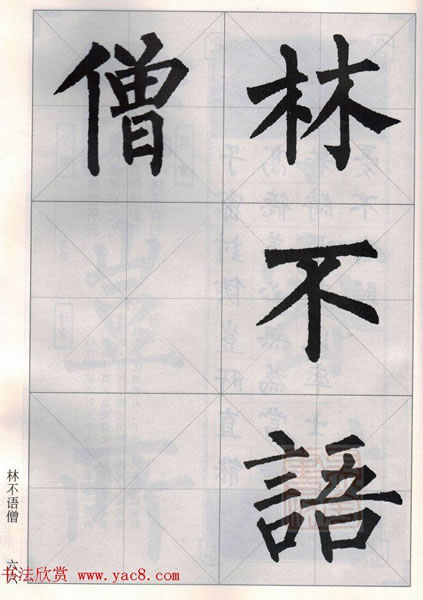 林不語
僧
林不语僧
六
书法欣赏 www.yac8.com